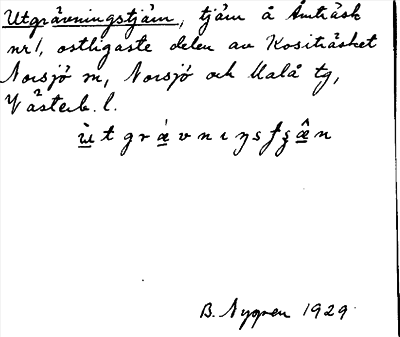 Utgrävningstjärn, tjärn å Åmträsk
nr 1, ostligaste delen av Kositräsket
Norsjö sn, Norsjö och Malå tg,
Västerb. l.
B. Nygren 1929